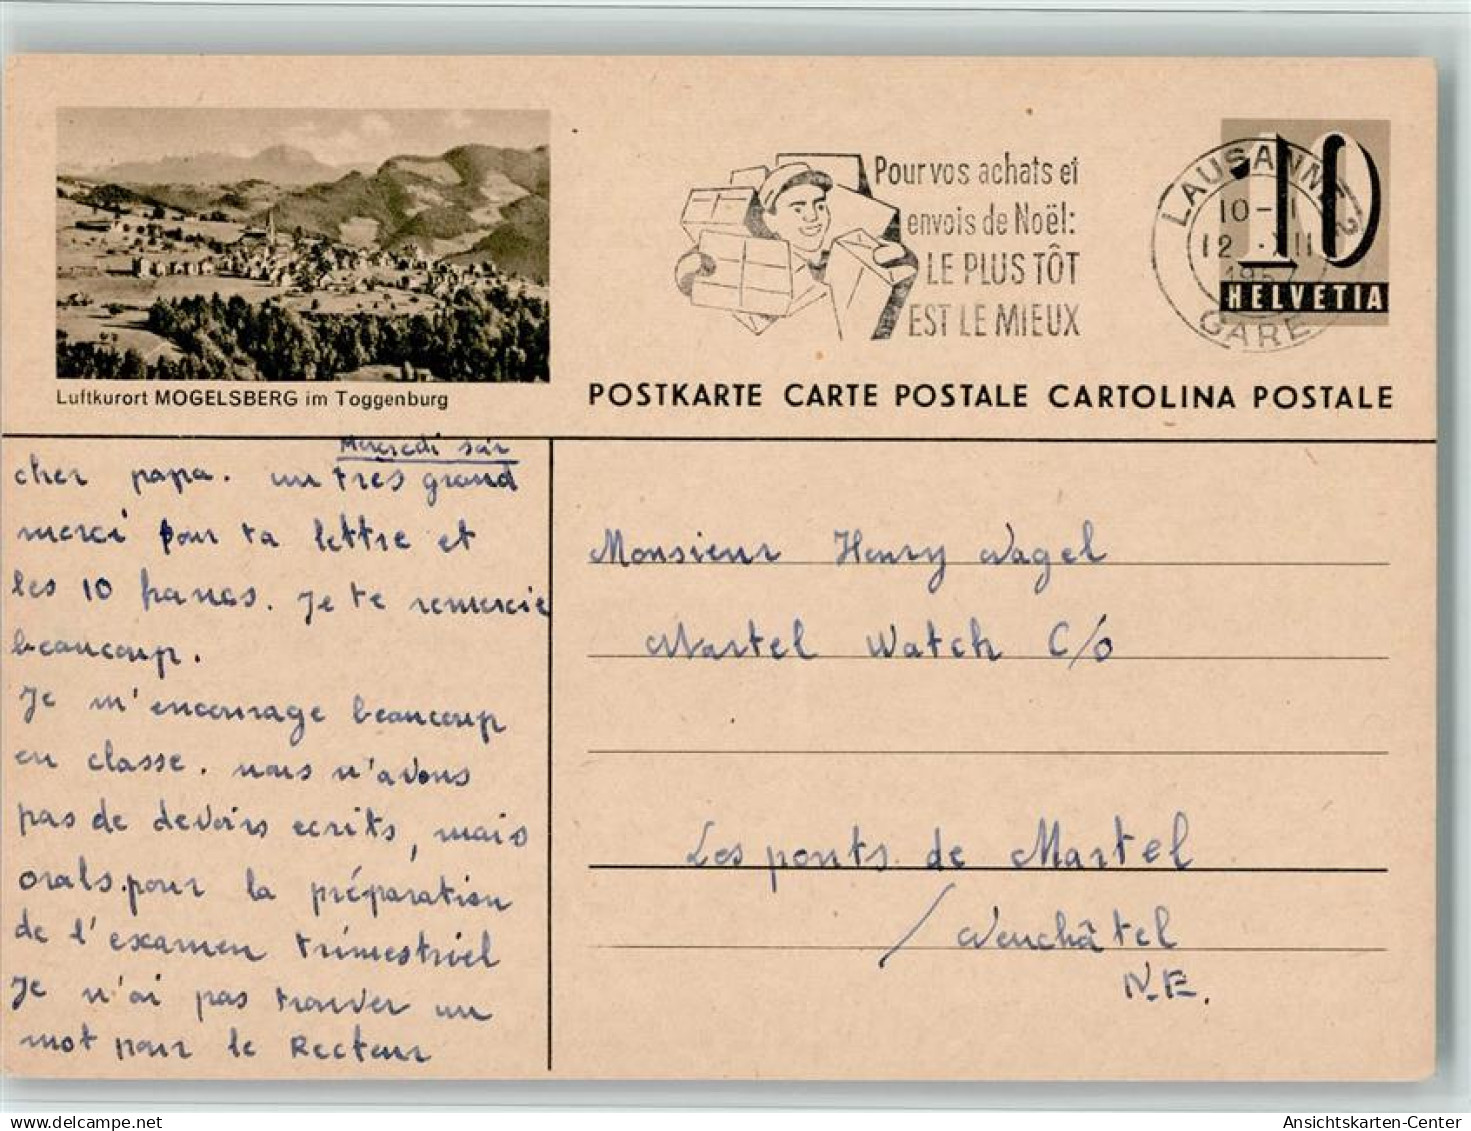 Luftkurort MOGELSBERG im Toggenburg
Pour vos achats et
envois de Noël:
LE PLUS TÔT
EST LE MIEUX
LAUSANNE 2
10-11
12.XII
1957
GARE
10
HELVETIA
POSTKARTE CARTE POSTALE CARTOLINA POSTALE
Mercredi soir
cher papa. un tres grand
merci pour ta lettre et
les 10 francs. Je te remercie
beaucoup.
Je m'encourage beaucoup
en classe. nous n'avons
pas de devoirs ecrits, mais
orals. pour la préparation
de l'examen trimestriel
Je n'ai pas trouver un
mot pour le Recteur
Monsieur Henry Nagel
Martel Watch C/o
Les ponts de Martel
/ Neuchâtel
N.E.
delcampe.net
Ansichtskarten-Center